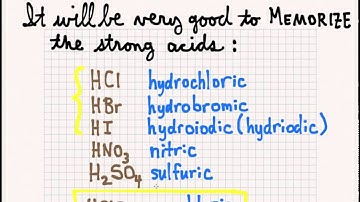 It will be very good to MEMORIZE
the strong acids :
HCl hydrochloric
HBr hydrobromic
HI hydroiodic (hydriodic)
HNO₃ nitric
H₂SO₄ sulfuric